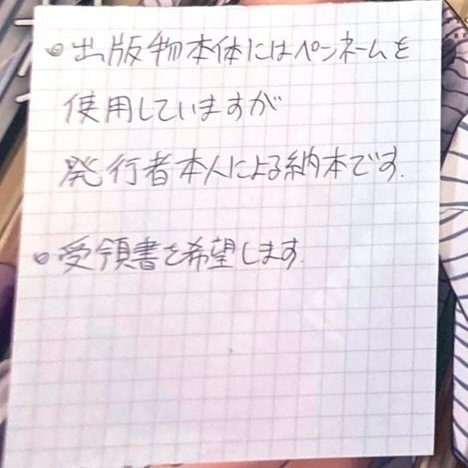 • 出版物本体にはペンネームを
使用していますが
発行者本人による納本です.
• 受領書を希望します.